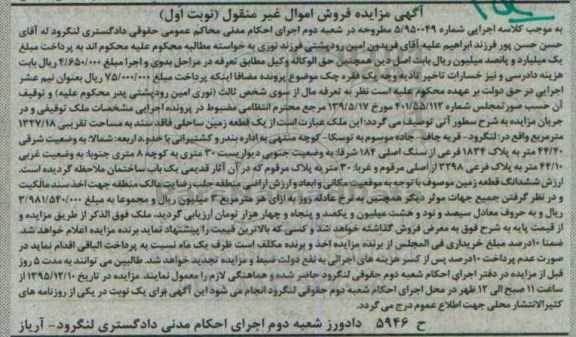 آگهی مزایده فروش اموال غیر منقول (نوبت اول)
به موجب کلاسه اجرایی شماره ۵/۹۵۰۰۴۹ مطروحه در شعبه دوم اجرای احکام مدنی محاکم عمومی حقوقی دادگستری لنگرود که آقای
حسن حسن پور فرزند ابراهیم علیه آقای فریدون امین رودپشتی فرزند نوری به خواسته مطالبه محکوم علیه محکوم اند به پرداخت مبلغ
یک میلیارد و پانصد میلیون ریال بابت اصل دین همچنین حق الوکاله وکیل مطابق تعرفه در مراحل بدوی و اجرا مبلغ ۴/۶۵۰/۰۰۰ ریال بابت
هزینه دادرسی و نیز خسارات تاخیر تادیه وجه یک فقره چک موضوع پرونده مضافا اینکه پرداخت مبلغ ۷۵/۰۰۰/۰۰۰ ریال بعنوان نیم عشر
اجرایی در حق دولت بر عهده محکوم علیه است نظر به تعرفه مال از سوی شخص ثالث (نوری امین رودپشتی پدر محکوم علیه) و توقیف
آن حسب صورتمجلس شماره ۴۰۱/۵۵/۱۱۲ مورخ ۱۳۹۵/۵/۱۷ مرجع محترم انتظامی مضبوط در پرونده اجرایی مشخصات ملک توقیفی و در
جریان مزایده به شرح سطور آتی توصیف می گردد؛ این ملک عبارت است از یک قطعه زمین ساحلی فاقد سند به مساحت تقریبی ۱۳۲۷/۱۸
مترمربع واقع در: لنگرود- قریه چاف- جاده موسوم به توسکا- کوچه منتهی به اداره بندر و کشتیرانی با حدود اربعه: شمالا: به وضعیت شرقی
۴۴/۲۰ متر به پلاک ۱۸۳۴ فرعی از سنگ اصلی ۱۸۴ شرقا: به وضعیت جنوبی دیواریست ۳۰ متری به کوچه ۸ متری جنوبا: به وضعیت غربی
۴۴/۱۰ متر به پلاک فرعی ۳۲۹۸ از اصلی مرقوم و غربا: ۳۰ متر به پلاک مرقوم که در آن آثار قدیمی یک باب ساختمان ملاحظه گردیده است.
ارزش ششدانگ قطعه زمین موصوف با توجه به موقعیت مکانی و ابعاد و ارزش اراضی منطقه جلب رضایت مالک منطقه جهت اخذ سند مالکیت
و در نظر گرفتن جمیع جهات موثر دیگر همچنین به نرخ عادله روز به ازای هر مترمربع ۳ میلیون ریال و مجموعا به مبلغ ۳/۹۸۱/۵۴۰/۰۰۰
ریال و به حروف معادل سیصد و نود و هشت میلیون و یکصد و پنجاه و چهار هزار تومان ارزیابی گردید. ملک فوق الذکر از طریق مزایده و
از قیمت پایه به شرح فوق به معرض فروش گذاشته خواهد شد و کسی که بالاترین قیمت را پیشنهاد نماید برنده مزایده اعلام خواهد شد.
ضمنا ۱۰درصد مبلغ خریداری فی المجلس از برنده مزایده اخذ و برنده مکلف است ظرف یک ماه نسبت به پرداخت الباقی اقدام نماید در
صورت عدم پرداخت ۱۰درصد پس از کسر هزینه های اجرائی به نفع دولت ضبط و مزایده تجدید خواهد شد. طالبین می توانند به مدت ۵ روز
قبل از مزایده در دفتر اجرای احکام شعبه دوم حقوقی لنگرود حاضر شده و هماهنگی لازم را معمول نمایند. مزایده در تاریخ ۱۳۹۵/۱۲/۱۰ از
ساعت ۱۱ صبح الی ۱۲ ظهر در محل اجرای احکام شعبه دوم حقوقی لنگرود انجام می شود این آگهی برای یک نوبت در یکی از روزنامه های
کثیرالانتشار محلی جهت اطلاع عموم درج می گردد.
ح ۵۹۴۶ دادورز شعبه دوم اجرای احکام مدنی دادگستری لنگرود- آریاز